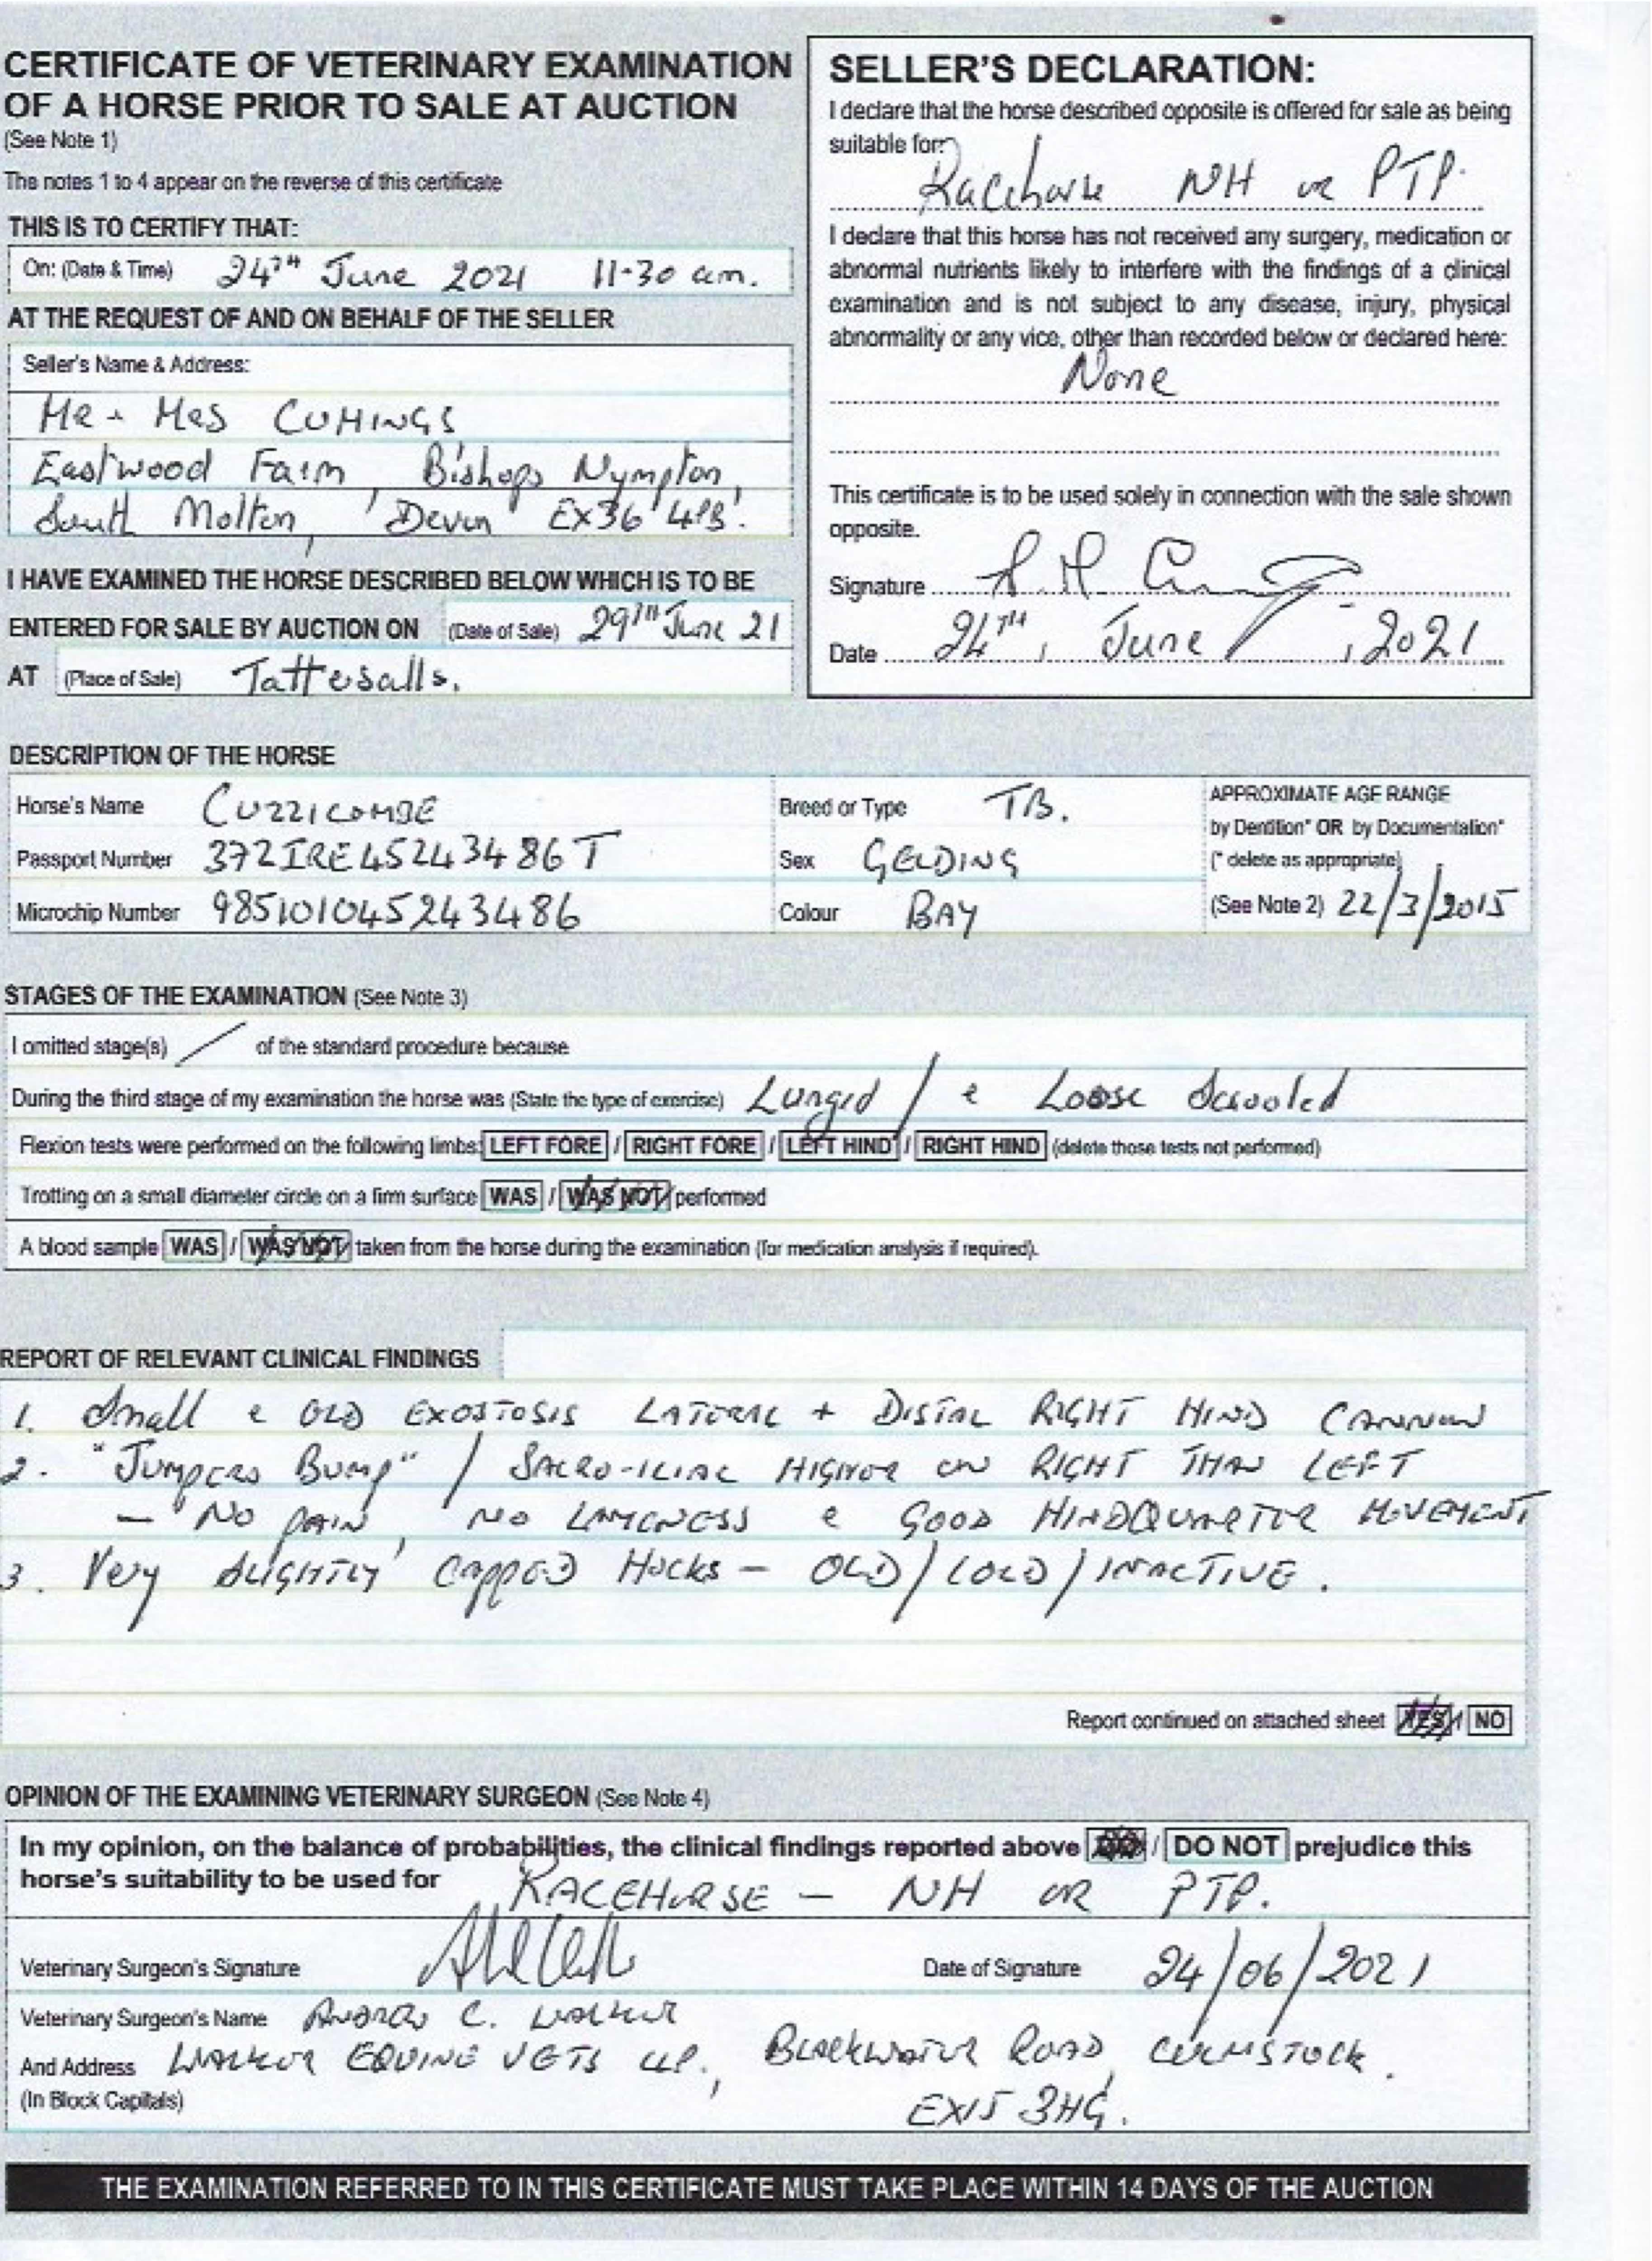 CERTIFICATE OF VETERINARY EXAMINATION
OF A HORSE PRIOR TO SALE AT AUCTION
(See Note 1)
The notes 1 to 4 appear on the reverse of this certificate
THIS IS TO CERTIFY THAT:
On: (Date & Time) 24TH June 2021 11-30 am.
AT THE REQUEST OF AND ON BEHALF OF THE SELLER
Seller's Name & Address:
MR + MRS CUMINGS
Eastwood Farm, Bishops Nympton,
South Molton, Devon EX36 4PB.
I HAVE EXAMINED THE HORSE DESCRIBED BELOW WHICH IS TO BE
ENTERED FOR SALE BY AUCTION ON (Date of Sale) 29TH June 21
AT (Place of Sale) Tattersalls.
SELLER'S DECLARATION:
I declare that the horse described opposite is offered for sale as being
suitable for:
Racehorse NH or PTP.
I declare that this horse has not received any surgery, medication or
abnormal nutrients likely to interfere with the findings of a clinical
examination and is not subject to any disease, injury, physical
abnormality or any vice, other than recorded below or declared here:
None
This certificate is to be used solely in connection with the sale shown
opposite.
Signature
Date 24TH, June, 2021
DESCRIPTION OF THE HORSE
Horse's Name CUZZICOMBE
Passport Number 372IRE45243486T
Microchip Number 985101045243486
Breed or Type TB.
Sex GELDING
Colour BAY
APPROXIMATE AGE RANGE
by Dentition* OR by Documentation*
(* delete as appropriate)
(See Note 2) 22/3/2015
STAGES OF THE EXAMINATION (See Note 3)
I omitted stage(s) / of the standard procedure because
During the third stage of my examination the horse was (State the type of exercise) Lunged / & Loose Schooled
Flexion tests were performed on the following limbs: LEFT FORE / RIGHT FORE / LEFT HIND / RIGHT HIND (delete those tests not performed)
Trotting on a small diameter circle on a firm surface WAS / WAS NOT performed
A blood sample WAS / WAS NOT taken from the horse during the examination (for medication analysis if required).
REPORT OF RELEVANT CLINICAL FINDINGS
1. Small & OLD EXOSTOSIS LATERAL + DISTAL RIGHT HIND CANNON
2. "JUMPERS BUMP" / SACRO-ILIAC HIGHER ON RIGHT THAN LEFT
- NO PAIN, NO LAMENESS & GOOD HINDQUARTER MOVEMENT
3. Very SLIGHTLY CAPPED HOCKS - OLD/COLD/INACTIVE.
Report continued on attached sheet YES / NO
OPINION OF THE EXAMINING VETERINARY SURGEON (See Note 4)
In my opinion, on the balance of probabilities, the clinical findings reported above DO / DO NOT prejudice this
horse's suitability to be used for RACEHORSE - NH OR PTP.
Veterinary Surgeon's Signature
Date of Signature 24/06/2021
Veterinary Surgeon's Name ANDREW C. WALKER
And Address WALKER EQUINE VETS LLP., BLACKWATER ROAD, CULMSTOCK.
(In Block Capitals) EX15 3HG.
THE EXAMINATION REFERRED TO IN THIS CERTIFICATE MUST TAKE PLACE WITHIN 14 DAYS OF THE AUCTION